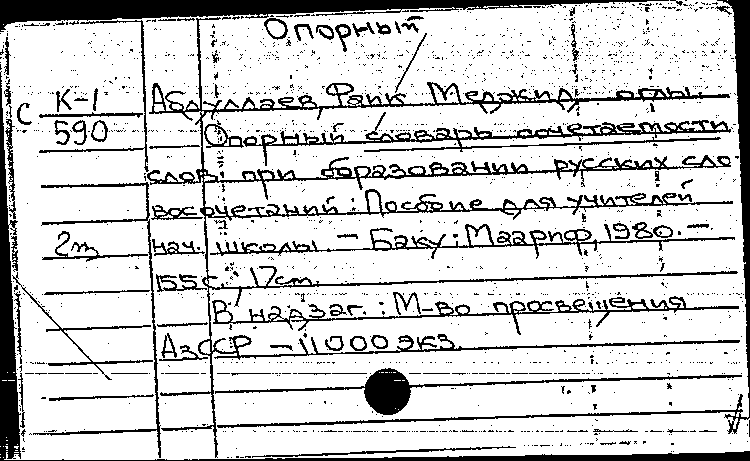 Опорный
С К-1 Абдуллаев, Фаик Меджид оглы.
590 Опорный словарь сочетаемости
слов при образовании русских сло-
восочетаний: Пособие для учителей
2т нач. школы. — Баку: Маариф, 1980. —
155 с., 17 cm.
В надзаг.: М-во просвещения
АзССР — 11000 экз.